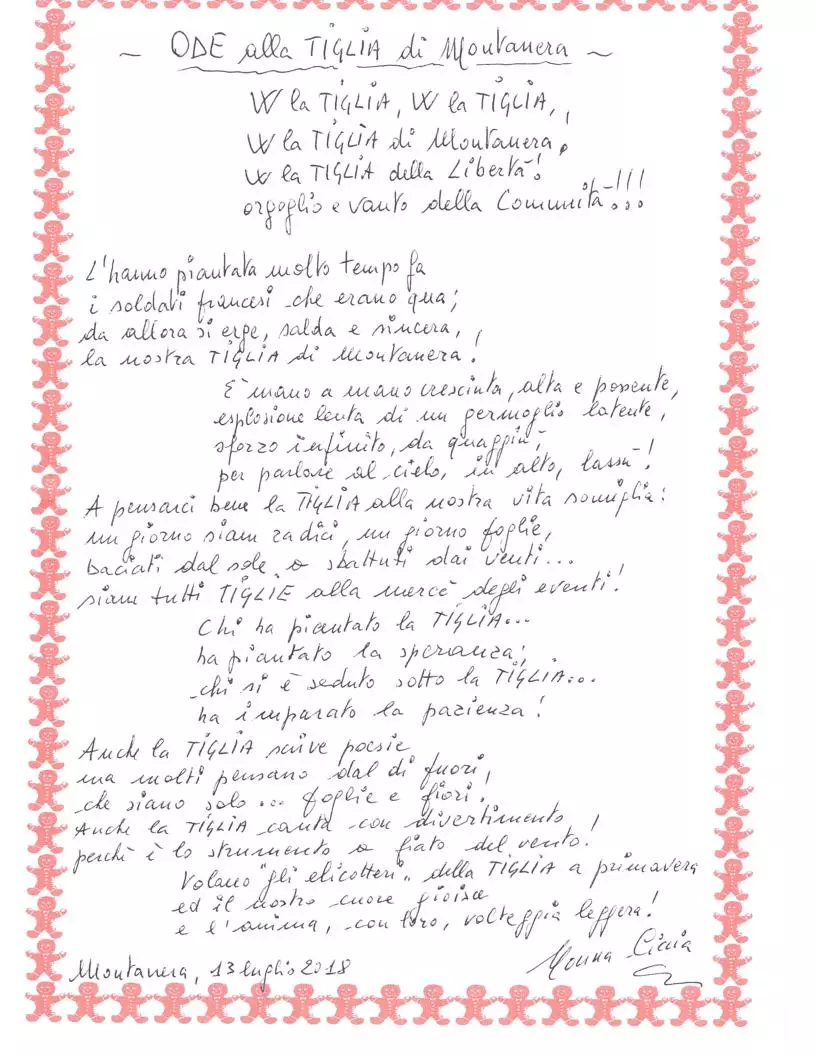 ~ ODE alla TIGLIA di Montanera ~
W la TIGLIA, W la TIGLIA,
W la TIGLIA di Montanera,
W la TIGLIA della Libertà!
orgoglio e vanto della Comunità...!!!
L'hanno piantata molto tempo fa
i soldati francesi che erano qua;
da allora si erge, salda e sincera,
la nostra TIGLIA di Montanera!
E' mano a mano cresciuta, alta e possente,
esplosione lenta di un germoglio latente,
sforzo infinito, da quaggiù,
per parlare al cielo, in alto, lassù!
A pensarci bene la TIGLIA alla nostra vita somiglia:
un giorno siam radici, un giorno foglie,
baciati dal sole o sbattuti dai venti...
siam tutti TIGLIE alla mercè degli eventi!
Chi ha piantato la TIGLIA...
ha piantato la speranza;
chi si è seduto sotto la TIGLIA...
ha imparato la pazienza!
Anche la TIGLIA scrive poesie
ma molti pensano dal di fuori,
che siano solo... foglie e fiori.
Anche la TIGLIA canta con divertimento
perchè è lo strumento a fiato del vento!
Volano "gli elicotteri" della TIGLIA a primavera
ed il nostro cuore gioisce
e l'anima, con loro, volteggia leggera!
Montanera, 13 luglio 2018
Monna Cicia